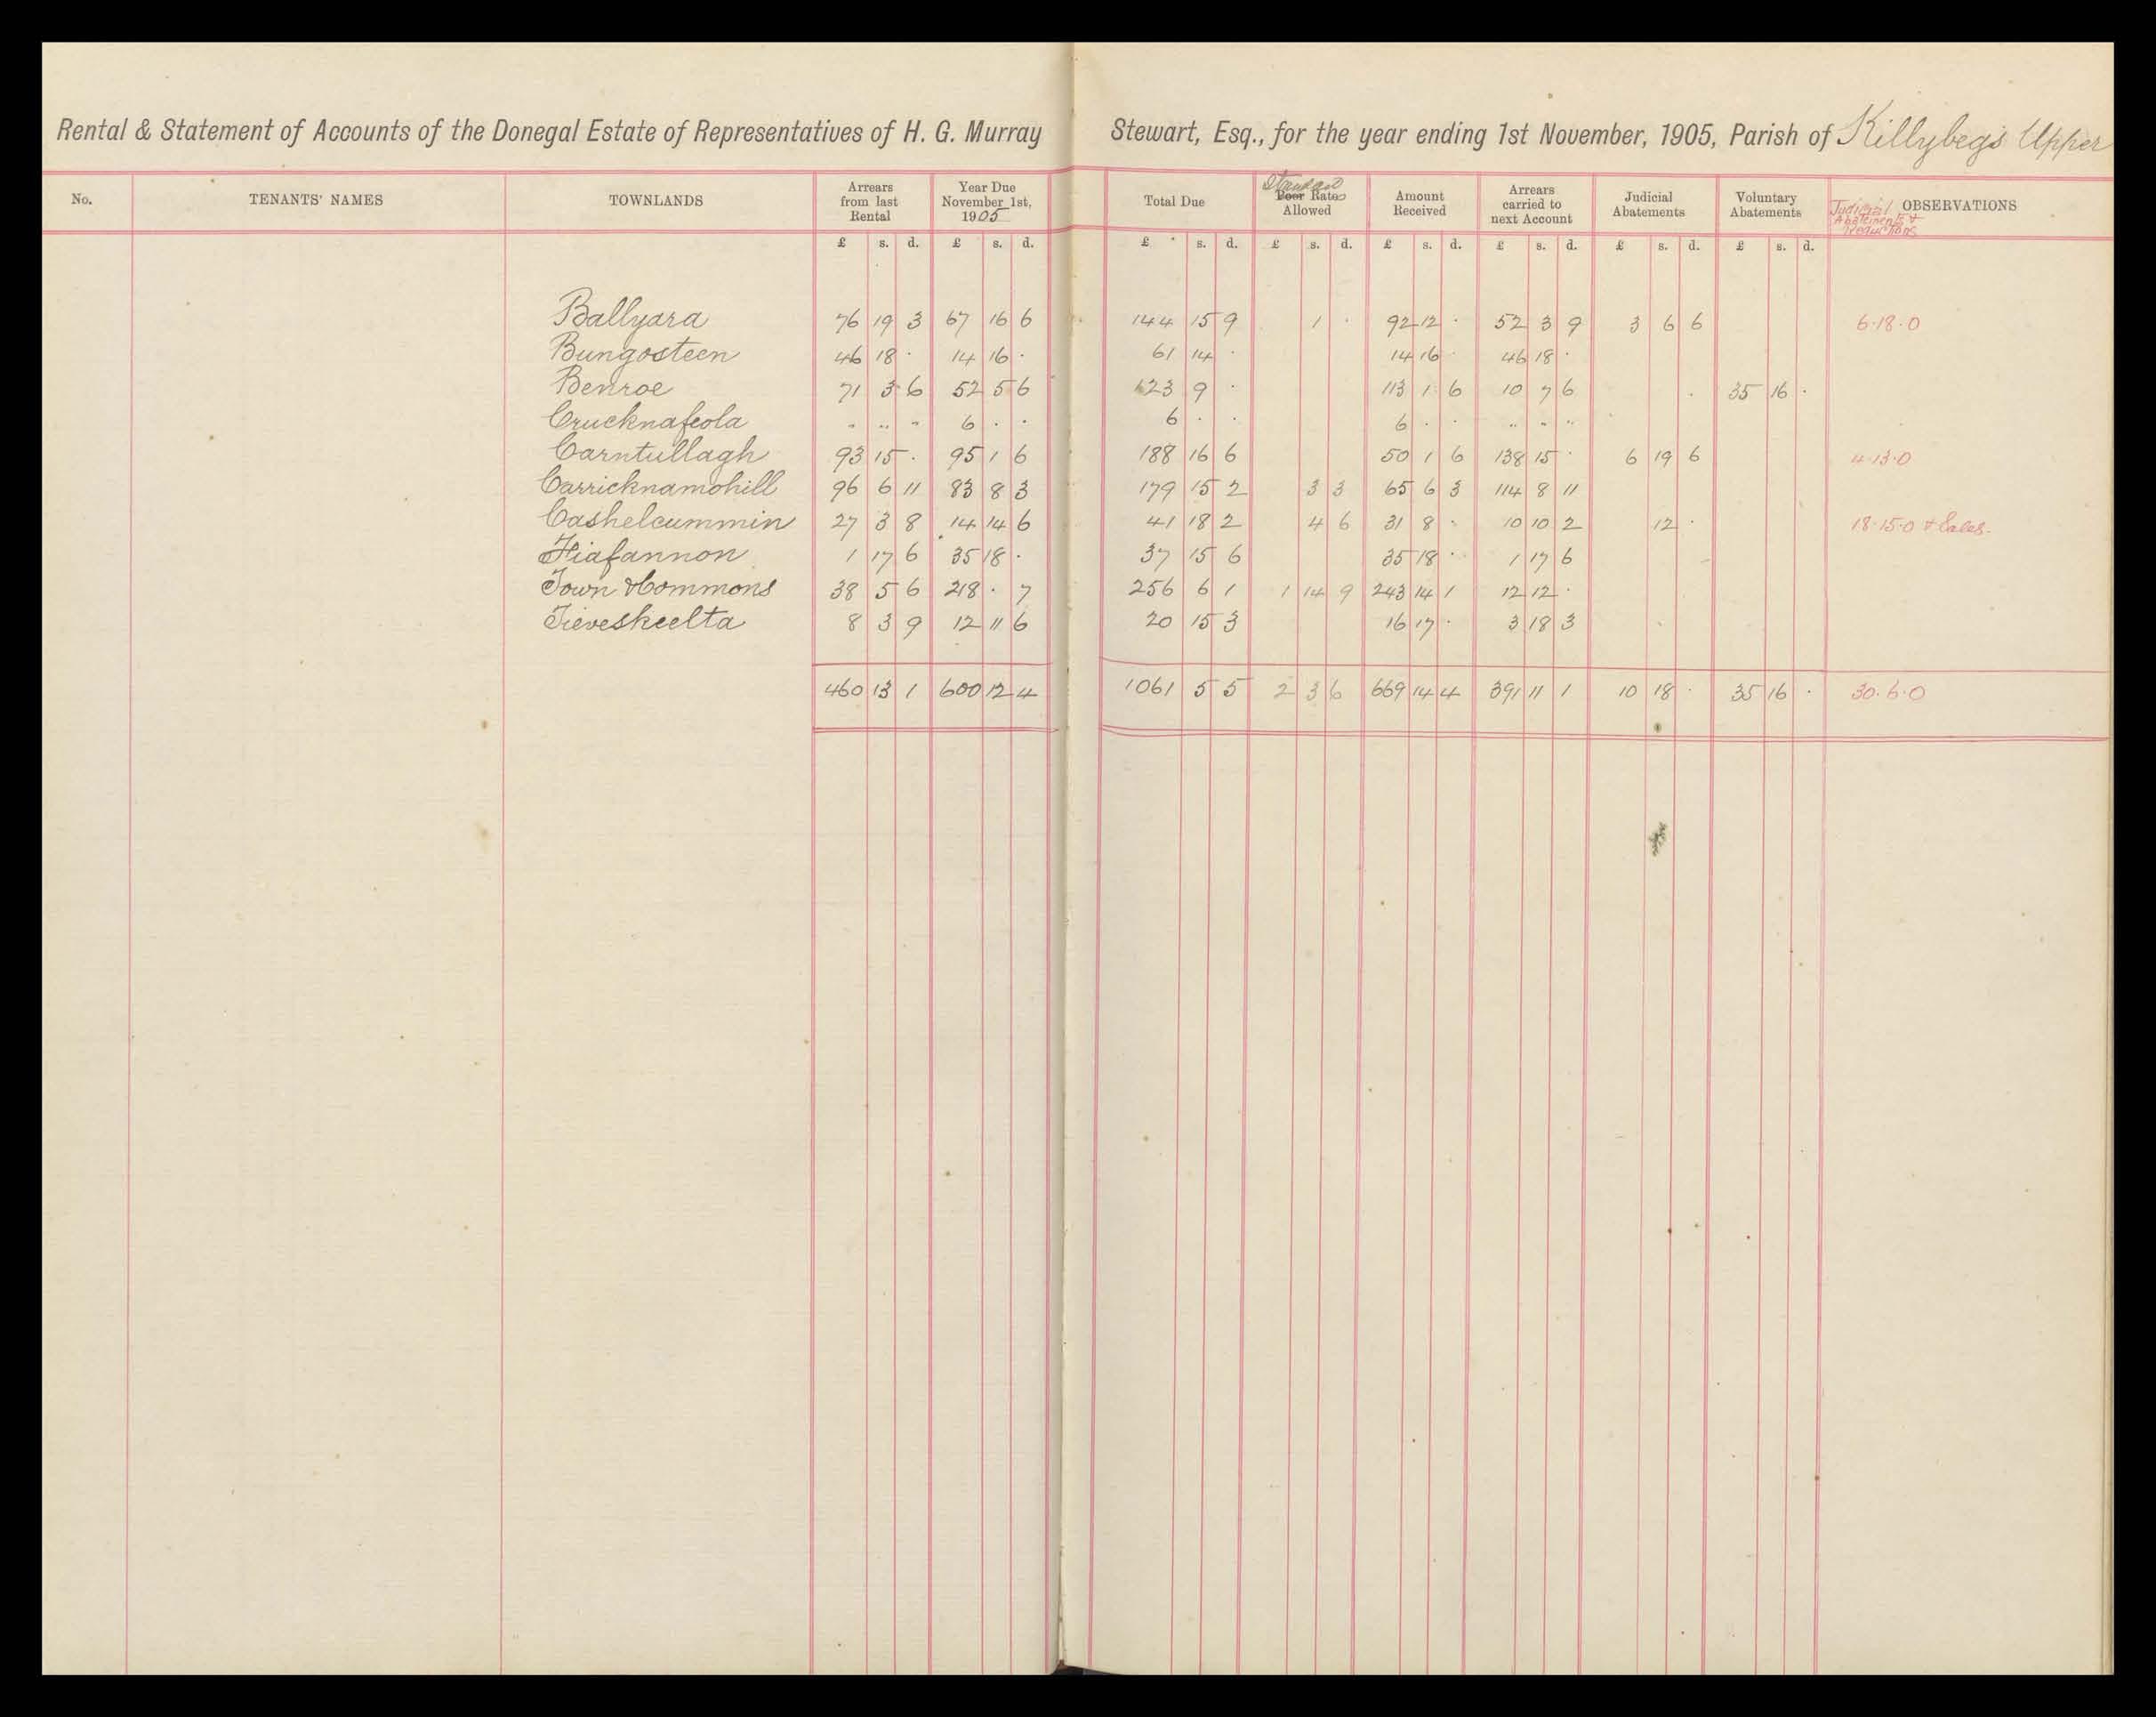 Rental & Statement of Accounts of the Donegal Estate of Representatives of H. G. Murray Stewart, Esq., for the year ending 1st November, 1905, Parish of Killybegs Upper
No. TENANTS' NAMES TOWNLANDS Arrears from last Rental Year Due November 1st, 1905 Total Due Standard Poor Rates Allowed Amount Received Arrears carried to next Account Judicial Abatements Voluntary Abatements Judicial Abatements & Reductions OBSERVATIONS
£ s. d. £ s. d. £ s. d. £ s. d. £ s. d. £ s. d. £ s. d. £ s. d.
Ballyara 76 19 3 67 16 6 144 15 9 1 · 92 12 · 52 3 9 3 6 6 6·18·0
Bungosteen 46 18 · 14 16 · 61 14 · 14 16 · 46 18 ·
Benroe 71 3 6 52 5 6 123 9 · 113 1 6 10 7 6 35 16 ·
Crucknafeola " " " 6 · · 6 · · 6 · · " " "
Carntullagh 93 15 · 95 1 6 188 16 6 50 1 6 138 15 · 6 19 6 4·13·0
Carricknamohill 96 6 11 83 8 3 179 15 2 3 3 65 6 3 114 8 11
Cashelcummin 27 3 8 14 14 6 41 18 2 4 6 31 8 · 10 10 2 12 · 18·15·0 & Sales.
Fiafannon 1 17 6 35 18 · 37 15 6 35 18 · 1 17 6
Town & Commons 38 5 6 218 · 7 256 6 1 1 14 9 243 14 1 12 12 ·
Tieveskeelta 8 3 9 12 11 6 20 15 3 16 17 · 3 18 3
460 13 1 600 12 4 1061 5 5 2 3 6 669 14 4 391 11 1 10 18 · 35 16 · 30·6·0